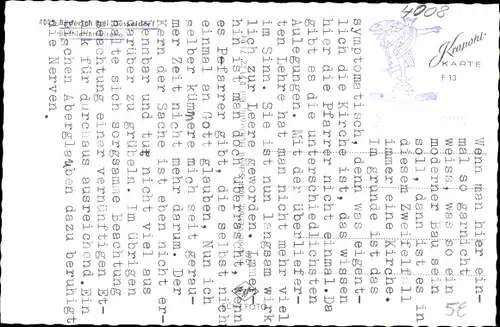 4008
Krapohl-
KARTE
F 13
Wenn man hier ein-
mal so garnicht
weiss, was so ein
moderner Bau sein
soll, dann ist es in
diesem Zweifelfall
immer eine Kirche.
Im grunde ist das
symptomatisch, denn was eigent-
lich die Kirche ist, das wissen
hier die Pfarrer nicht einmal. Da
gibt es die unterschiedlichsten
Auslegungen. Mit der überliefer-
ten Lehre hat man nicht mehr viel
im Sinn. Sie ist nun langsam wirk
lich zur Leere geworden. Immer-
hin ist man doch überrascht, wenn
es Pfarrer gibt, die selbst nicht
einmal an Gott glauben, Nun ich
selber kümmere mich seit gerau-
mer Zeit nicht mehr darum. Der
Kern der Sache ist eben nicht er-
kennbar und tut nicht viel aus
darüber zu grübeln. Im übrigen
sich sorgsamme Beachtung
einer vernünftigen Et-
für durchaus ausreichend. Ein
Aberglauben dazu beruhigt
die Nerven.
FOTO
5€